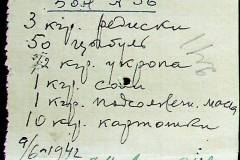 3 кгр. редиски
50 цыбуль
1/2 кгр. укропа
1 кгр. соли
1 кгр. подсолнечн. масла
10 кгр. картошки
9/6-1942